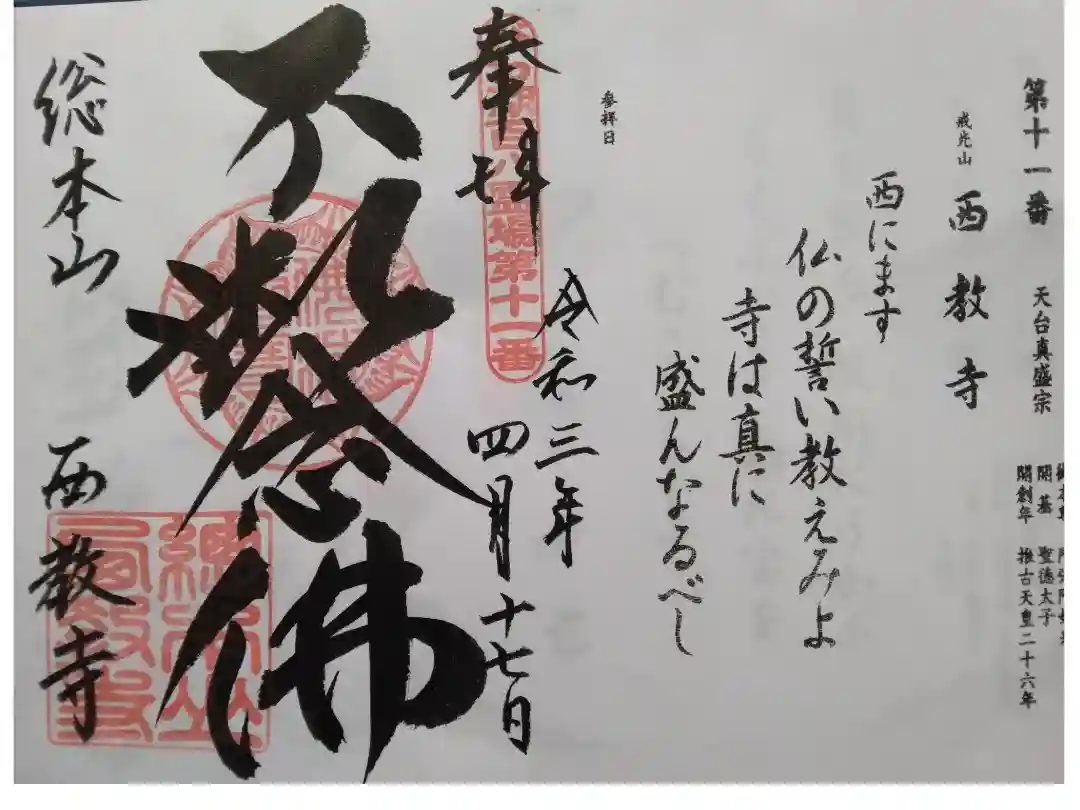 第十一番 天台真盛宗
開基 聖徳太子
開創年 推古天皇二十六年
戒光山 西教寺
西にます
仏の誓い教えみよ
寺は真に
盛んなるべし
参拝日
奉拝
湖百八霊場第十一番
令和三年
四月十七日
不斷念佛
総本山 西教寺
總本山西教寺